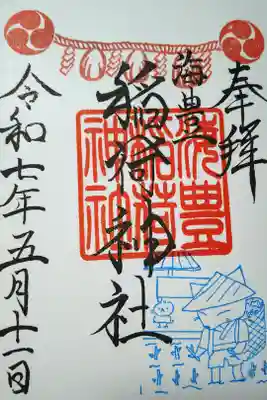 奉拝
海豊
稲荷神社
海豊
稲荷
神社
令和七年五月十一日